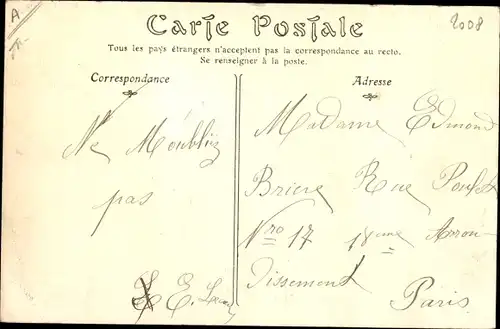 A
2008
Carte Postale
Tous les pays étrangers n'acceptent pas la correspondance au recto.
Se renseigner à la poste.
Correspondance
Ne Moubliz
pas
E.
Adresse
Madame Edmond
Briere Rue Poulet
Nro 17 18eme Arron-
dissement
Paris